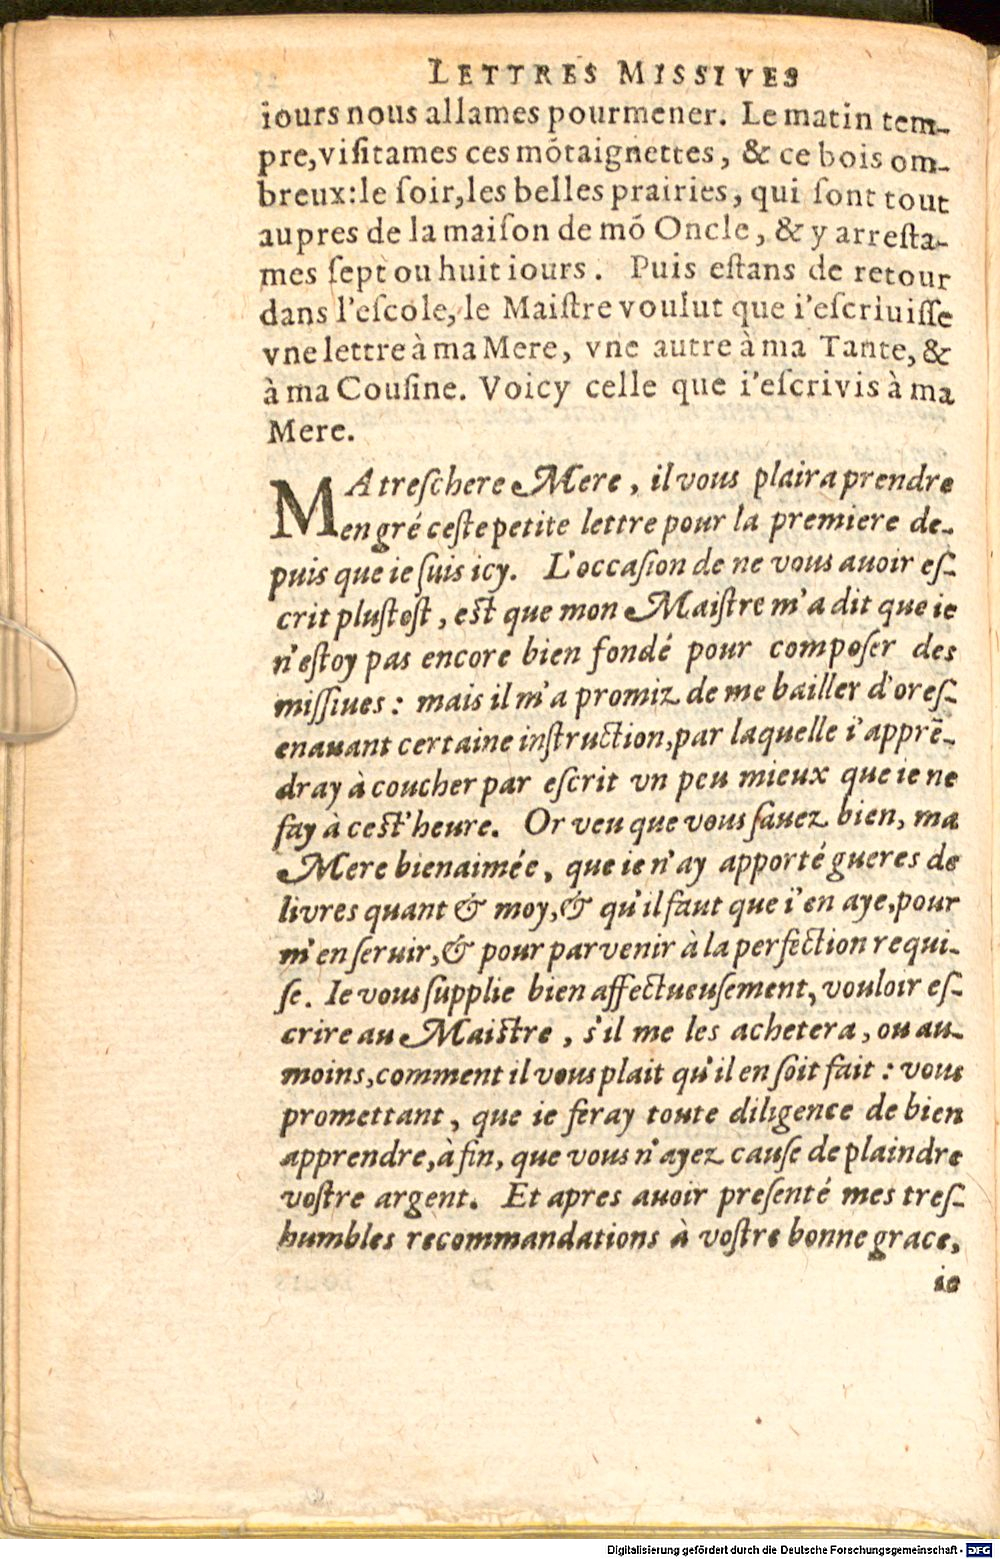 LETTRES MISSIVES
iours nous allames pourmener. Le matin tem-
pre, viſitames ces mõtaignettes, & ce bois om-
breux: le ſoir, les belles prairies, qui ſont tout
aupres de la maiſon de mõ Oncle, & y arreſta-
mes ſept ou huit iours. Puis eſtans de retour
dans l'eſcole, le Maiſtre voulut que i'eſcriuiſſe
vne lettre à ma Mere, vne autre à ma Tante, &
à ma Couſine. Voicy celle que i'eſcrivis à ma
Mere.
MA treſchere Mere, il vous plaira prendre
en gré ceſte petite lettre pour la premiere de-
puis que ie ſuis icy. L'occaſion de ne vous auoir eſ-
crit pluſtoſt, eſt que mon Maiſtre m'a dit que ie
n'eſtoy pas encore bien fondé pour compoſer des
miſſiues: mais il m'a promiz de me bailler d'oreſ-
enauant certaine inſtruction, par laquelle i'apprẽ-
dray à coucher par eſcrit vn peu mieux que ie ne
fay à ceſt'heure. Or veu que vous ſauez bien, ma
Mere bienaimée, que ie n'ay apporté gueres de
livres quant & moy, & qu'il faut que i'en aye, pour
m'en ſeruir, & pour parvenir à la perfection requi-
ſe. Ie vous ſupplie bien affectueuſement, vouloir eſ-
crire au Maiſtre, s'il me les achetera, ou au-
moins, comment il vous plait qu'il en ſoit fait: vous
promettant, que ie feray toute diligence de bien
apprendre, à fin, que vous n'ayez cauſe de plaindre
voſtre argent. Et apres auoir preſenté mes treſ-
humbles recommandations à voſtre bonne grace,
ie
Digitalisierung gefördert durch die Deutsche Forschungsgemeinschaft - DFG